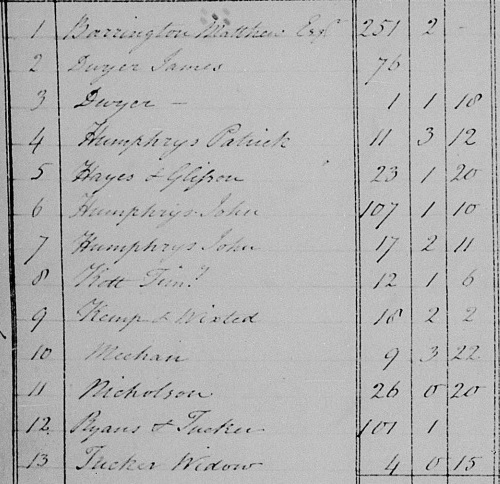 1 Barrington Matthew Esqr 251 2 -
2 Dwyer James 76
3 Dwyer — 1 1 18
4 Humphrys Patrick 11 3 12
5 Hayes & Glisson 23 1 20
6 Humphrys John 107 1 10
7 Humphrys John 17 2 11
8 Kott Timy 12 1 6
9 Kemp & Wixted 18 2 2
10 Meehan 9 3 22
11 Nicholson 26 0 20
12. Ryans & Tucker 101 1
13 Tucker Widow 4 0 15